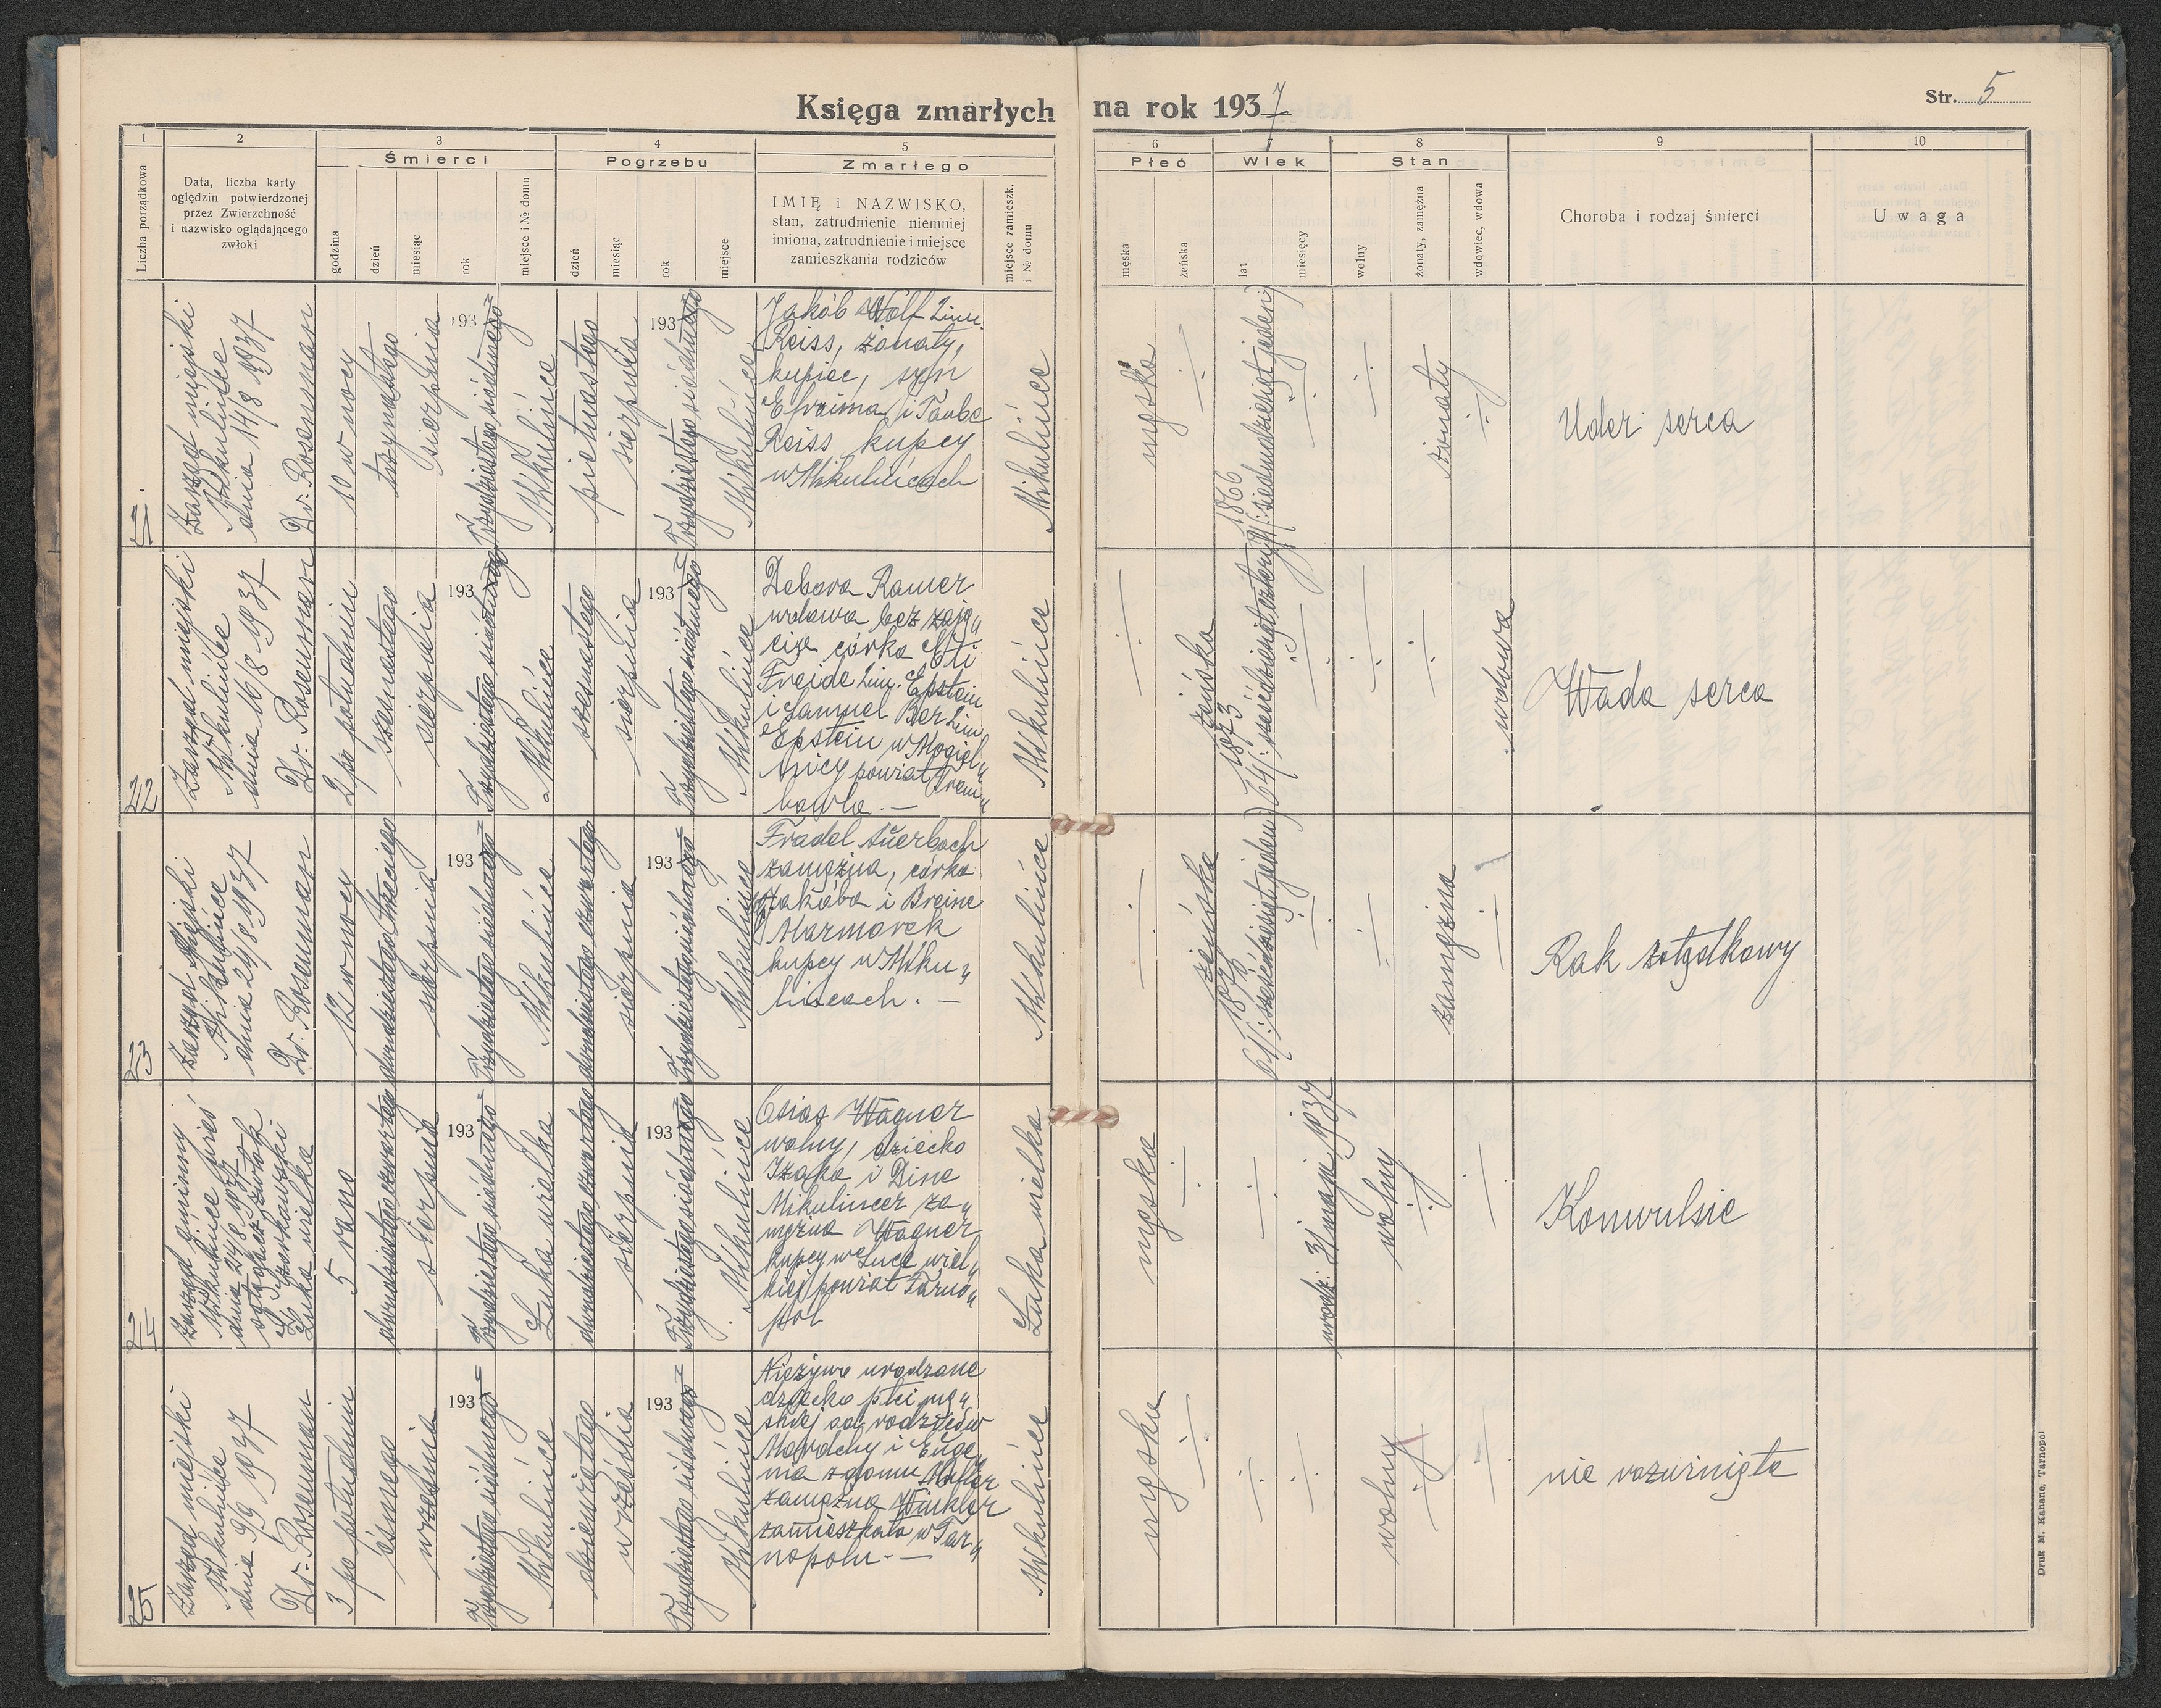 Księga zmarłych na rok 1937
Str. 5
1
2
3
4
5
6
7
8
9
10
Liczba porządkowa
Data, liczba karty
oględzin potwierdzonej
przez Zwierzchność
i nazwisko oglądającego
zwłoki
Śmierci
godzina
dzień
miesiąc
rok
miejsce i № domu
Pogrzebu
dzień
miesiąc
rok
miejsce
Zmarłego
IMIĘ i NAZWISKO,
stan, zatrudnienie niemniej
imiona, zatrudnienie i miejsce
zamieszkania rodziców
miejsce zamieszk.
i № domu
Płeć
męska
żeńska
Wiek
lat
miesięcy
Stan
wolny
żonaty, zamężna
wdowiec, wdowa
Choroba i rodzaj śmierci
Uwaga
21
Zarząd miejski
Mikulińce
dnia 14/8 1937
Dr. Rosenman
10 w nocy
trzynastego
sierpnia
193
Trzydziestego siódmego
Mikulińce
piętnastego
sierpnia
193
Trzydziestego siódmego
Mikulińce
Jakób Wolf 2 im.
Reiss, żonaty,
kupiec, syn
Efroima i Taube
Reiss kupcy
w Mikulińcach
Mikulińce
męska
1866
71 (: siedmdziesiąt jeden :)
żonaty
Uder serca
22
Zarząd miejski
Mikulińce
dnia 16/8 1937
Dr. Rosenman
2 po południu
szesnastego
sierpnia
193
Trzydziestego siódmego
Mikulińce
szesnastego
sierpnia
193
Trzydziestego siódmego
Mikulińce
Debora Ramer
wdowa bez zaję„
cia córka Eti
Freide 2 im. Epstein
i Samuel Ber 2 im
Epstein w Mogiel„
nicy powiat Trem„
bowla. —
Mikulińce
żeńska
1873
64 (: sześćdziesiąt cztery :)
wdowa
Wada serca
23
Zarząd Miejski
Mikulińce
dnia 24/8 1937
Dr. Rosenman
12 w nocy
dwudziestego trzeciego
sierpnia
193
Trzydziestego siódmego
Mikulińce
dwudziestego czwartego
sierpnia
193
Trzydziestego siódmego
Mikulińce
Fradel Auerbach
zamężna, córka
Jakóba i Breine
Marmorek
kupcy w Miku„
lińcach. —
Mikulińce
żeńska
1876
61 (: sześćdziesiąt jeden :)
zamężna
Rak żołądkowy
24
Zarząd gminny
Mikulińce wieś
dnia 24/8 1937
oglądacz zwłok
Łuka wielka
5 rano
dwudziestego czwartego
sierpnia
193
Trzydziestego siódmego
Łuka wielka
dwudziestego czwartego
sierpnia
193
Trzydziestego siódmego
Mikulińce
Osias Wagner
wolny, dziecko
Izaka i Dine
Mikulincer za„
mężna Wagner
kupcy w Łuce wiel„
kiej powiat Tarno„
pol
Łuka wielka
męska
urodz. 31 maja 1937
wolny
Konwulsie
25
Zarząd miejski
Mikulińce
dnia 9/9 1937
Dr. Rosenman
3 po południu
ósmego
września
193
Trzydziestego siódmego
Mikulińce
dziewiątego
września
193
Trzydziestego siódmego
Mikulińce
Nieżywo urodzone
dziecko płci mę„
skiej od rodziców
Mordchy i Euge„
nia z domu
zamężna Winkler
zamieszkała w Tar„
nopolu. —
Mikulińce
męska
wolny
nie rozwinięte
Druk M. Kahane, Tarnopol